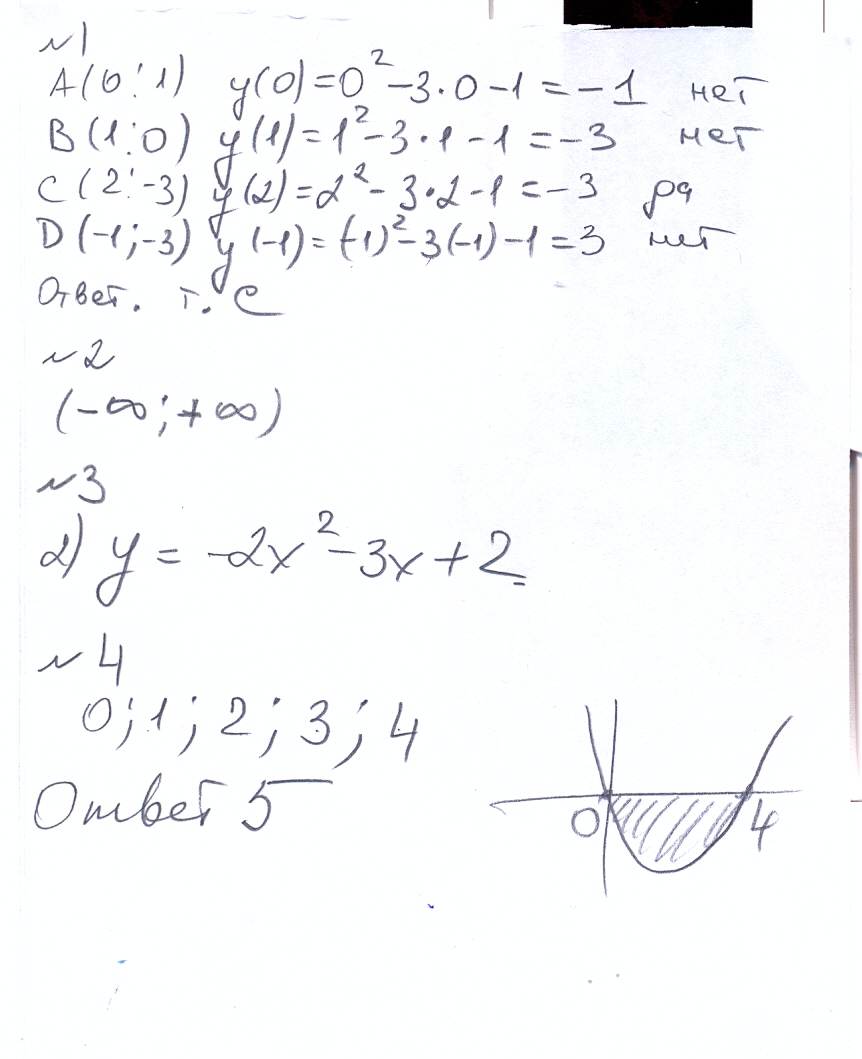 №1
A(0;1) y(0)=0²-3·0-1=-1 нет
B(1;0) y(1)=1²-3·1-1=-3 нет
C(2;-3) y(2)=2²-3·2-1=-3 да
D(-1;-3) y(-1)=(-1)²-3(-1)-1=3 нет
Ответ. т. C
№2
(-∞;+∞)
№3
2) y = -2x²-3x+2
№4
0; 1; 2; 3; 4
Ответ 5
0 4